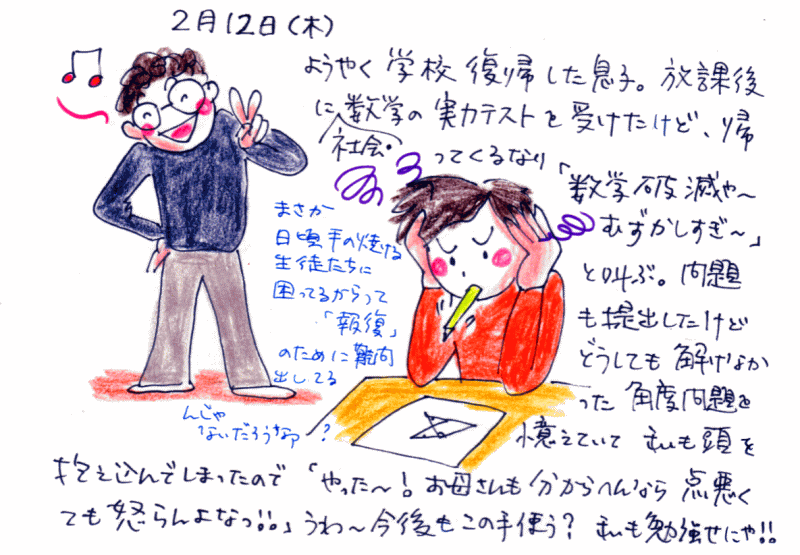 2月12日(木)
ようやく学校復帰した息子。放課後
に数学の実力テストを受けたけど、帰
社会・
ってくるなり「数学破滅や〜
むずかしすぎ〜」
と叫ぶ。問題
も提出したけど
どうしても解けなか
った角度問題を
憶えていて私も頭を
抱え込んでしまったので「やった〜!お母さんも分からへんなら点悪く
ても怒らんよなっ!!」うわ〜今後もこの手使う?私も勉強せにゃ!!
まさか
日頃手の焼ける
生徒たちに
困ってるからって
「報復」
のために難問
出してる
んじゃ
ないだろうなァ?